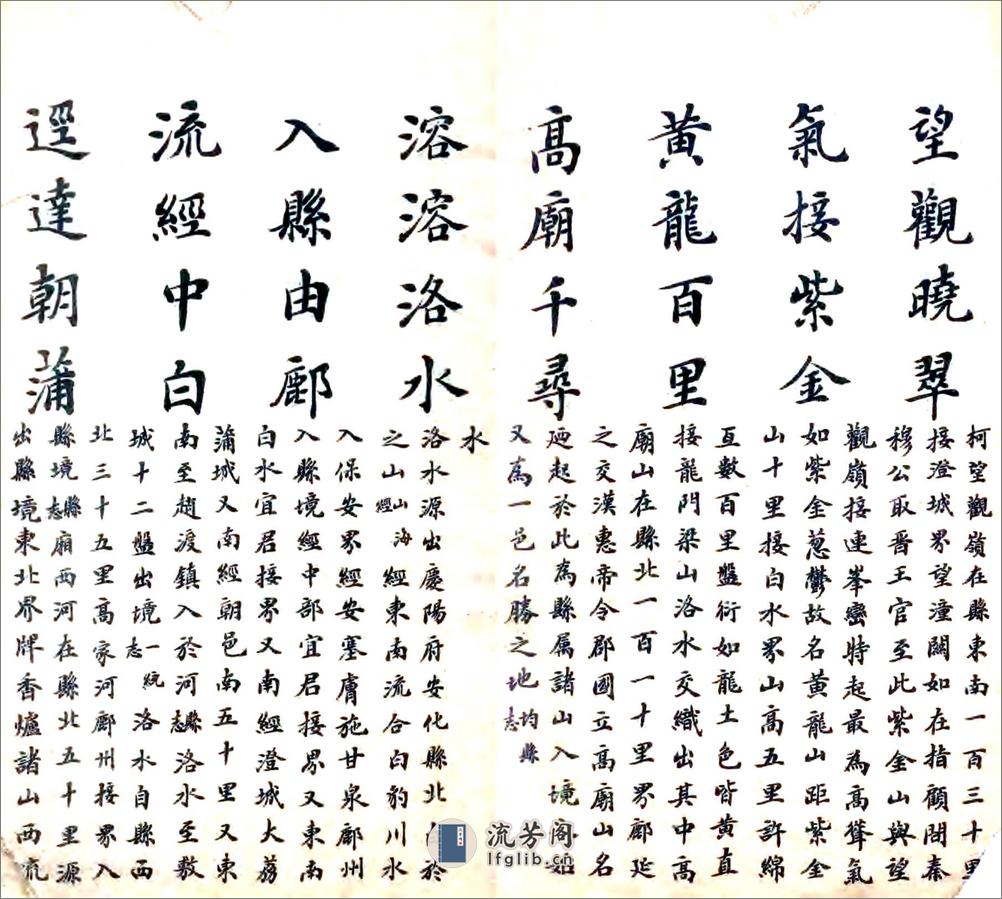 望觀曉翠
氣接紫金
黃龍百里
高廟千尋
溶溶洛水
入縣由鄜
流經中白
逕達朝蒲
柯望觀嶺在縣東南一百三十里
接澄城界望潼關如在指顧間秦
穆公取晉王官至此紫金山與望
觀嶺接連峯巒特起最為高聳氣
如紫金葱鬱故名黃龍山距紫金
山十里接白水界山高五里許綿
亙數百里盤衍如龍土色皆黃直
接龍門梁山洛水交織出其中高
廟山在縣北一百一十里界鄜延
之交漢惠帝令郡國立高廟山名
廼起於此為縣属諸山入境始
又為一邑名勝之地均縣志
水
洛水源出慶陽府安化縣北於
之山山海經經東南流合白豹川水
入保安界經安塞膚施甘泉鄜州
入縣境經中部宜君接界又東南
白水宜君接界又南經澄城大荔
蒲城又南經朝邑南五十里又東
南至趙渡鎮入於河縣志洛水至敷
城十二盤出境一統志洛水自縣西
北三十五里高家河鄜州接界入
縣境縣志廂西河在縣北五十里源
出縣境東北界牌香爐諸山西流
流芳阁
lfglib.cn